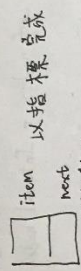 item
next
以指標完成